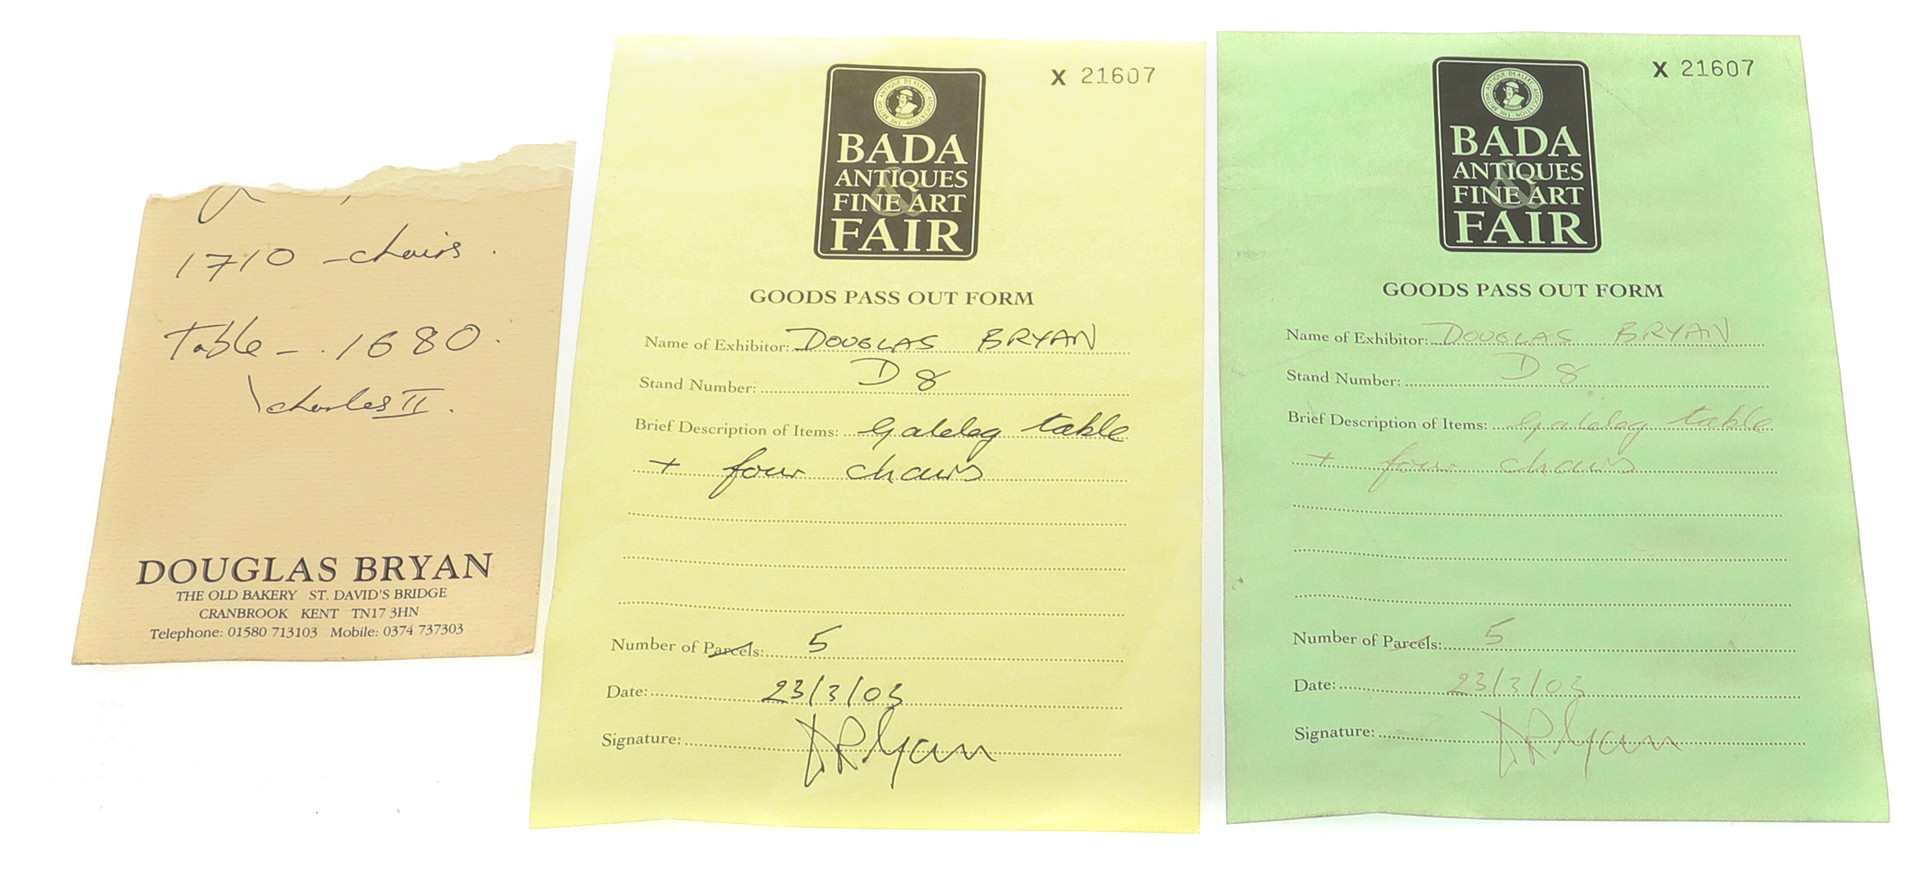 1710 - chairs.
Table - . 1680.
\ charles II.
DOUGLAS BRYAN
THE OLD BAKERY ST. DAVID'S BRIDGE
CRANBROOK KENT TN17 3HN
Telephone: 01580 713103 Mobile: 0374 737303
X 21607
THE BRITISH ANTIQUE DEALERS' ASSOCIATION
BADA
ANTIQUES
&
FINE ART
FAIR
GOODS PASS OUT FORM
Name of Exhibitor: DOUGLAS BRYAN
Stand Number: D 8
Brief Description of Items: Gateleg table
+ four chairs
Number of Parcels: 5
Date: 23/3/03
Signature: DRBryan
X 21607
THE BRITISH ANTIQUE DEALERS' ASSOCIATION
BADA
ANTIQUES
&
FINE ART
FAIR
GOODS PASS OUT FORM
Name of Exhibitor: DOUGLAS BRYAN
Stand Number: D 8
Brief Description of Items: Gateleg table
+ four chairs
Number of Parcels: 5
Date: 23/3/03
Signature: DRBryan